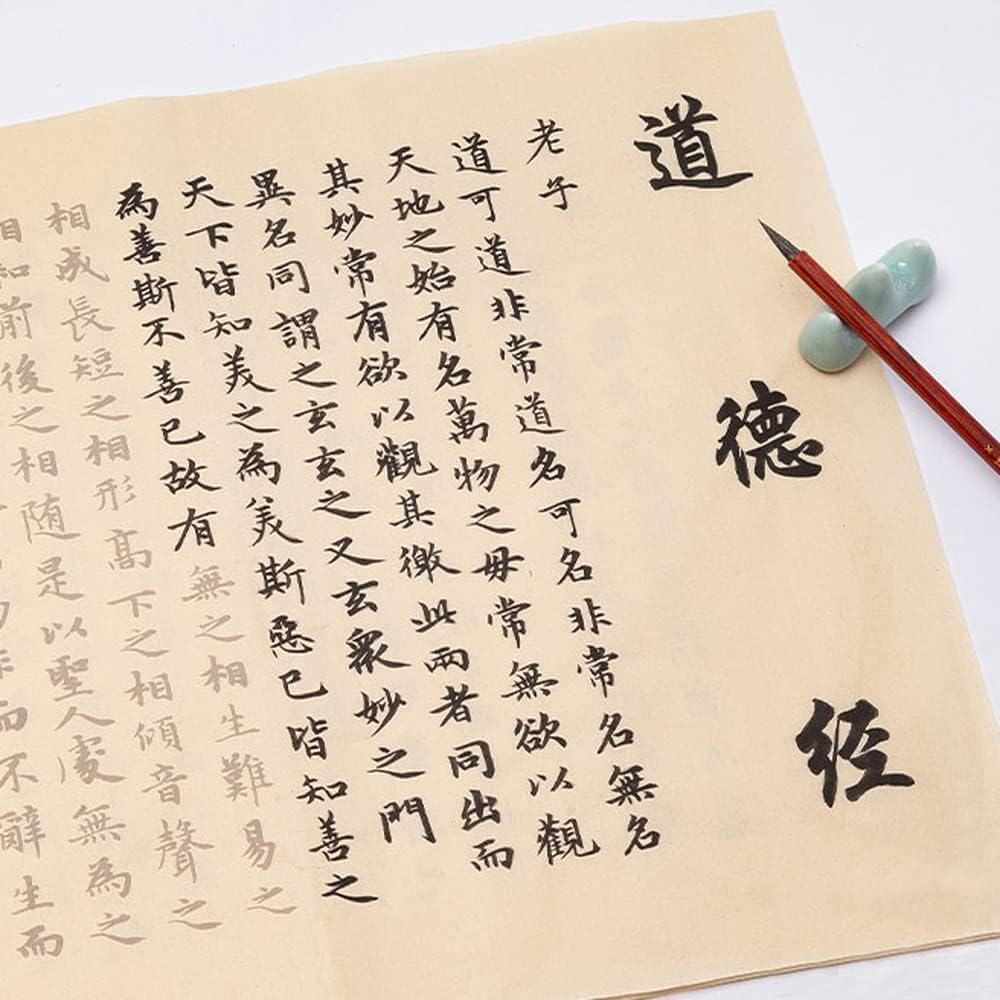 道德经
老子
道可道非常道名可名非常名無名
天地之始有名萬物之母常無欲以觀
其妙常有欲以觀其徼此兩者同出而
異名同謂之玄玄之又玄衆妙之門
天下皆知美之為美斯惡已皆知善之
為善斯不善已故有無之相生難易之
相成長短之相形高下之相傾音聲之
相和前後之相随是以聖人處無為之
而不辭生而